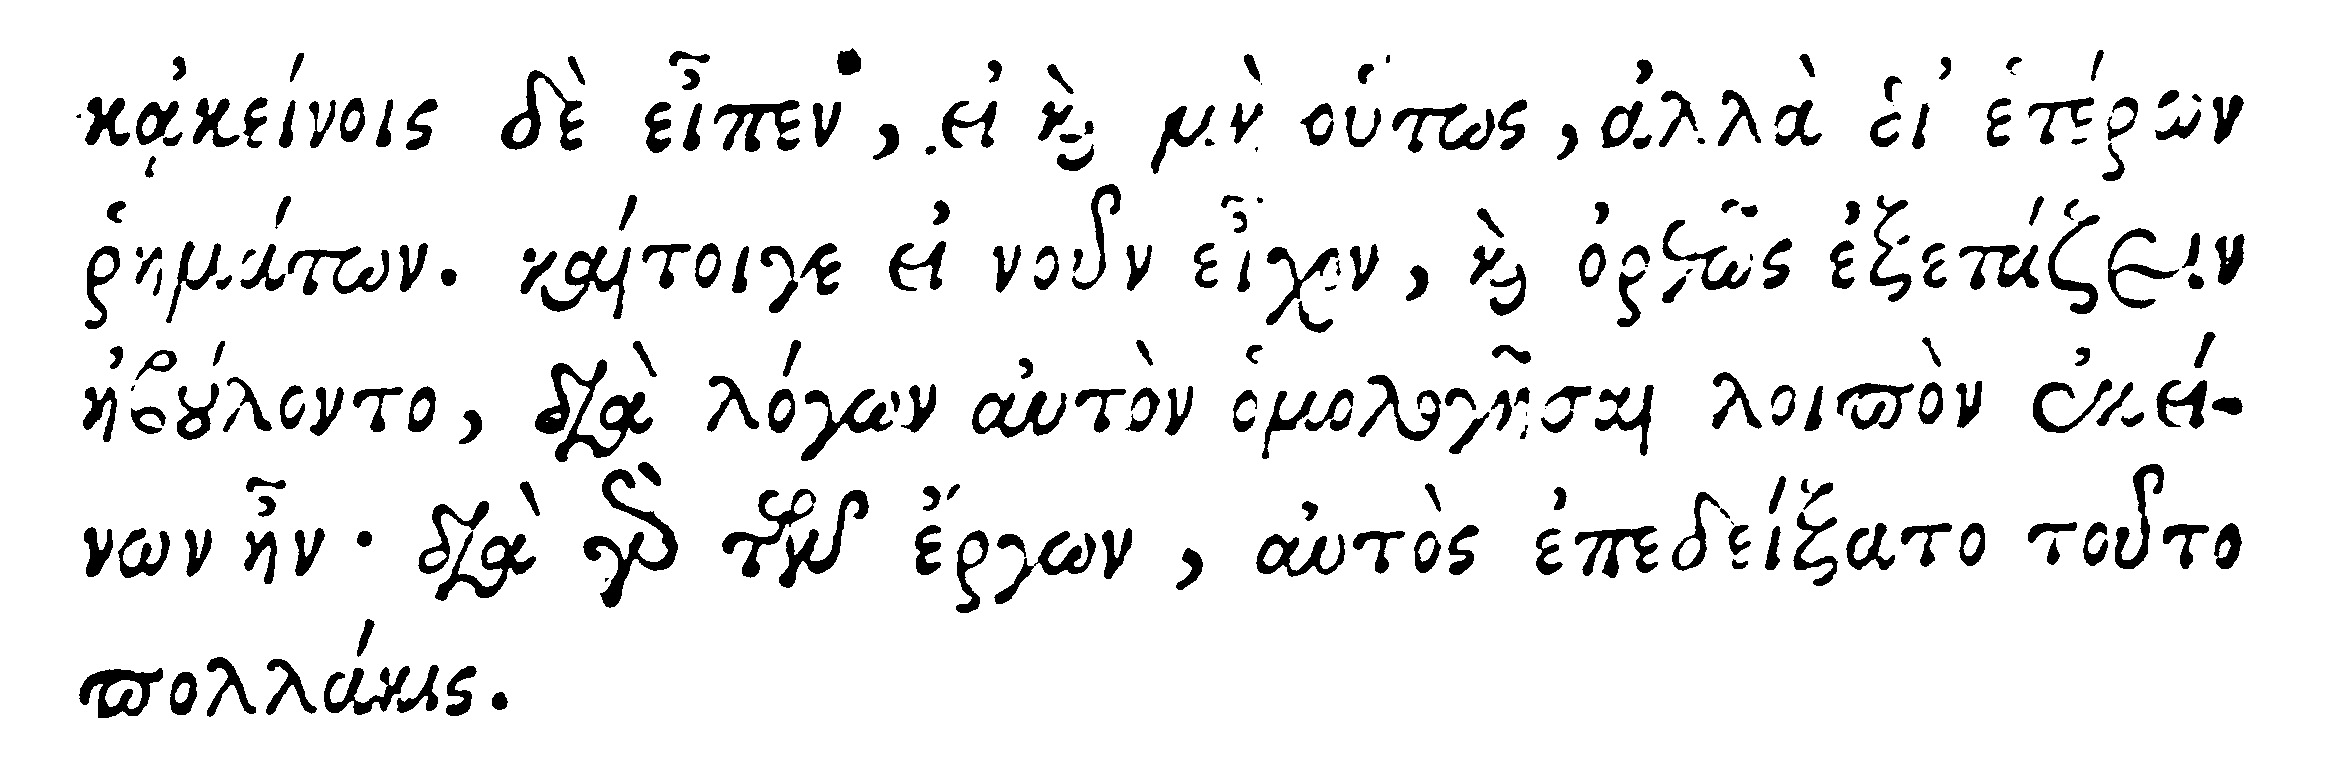 κᾀκείνοις δὲ εἶπεν, εἰ καὶ μὴ οὕτως, ἀλλὰ δι' ἑτέρων
ῥημάτων. καίτοιγε εἰ νοῦν εἶχον, καὶ ὀρθῶς ἐξετάζειν
ἠβούλοντο, διὰ λόγων αὐτὸν ὁμολογῆσαι λοιπὸν ἐκεί-
νων ἦν· διὰ γὰρ τῶν ἔργων, αὐτὸς ἐπεδείξατο τοῦτο
πολλάκις.